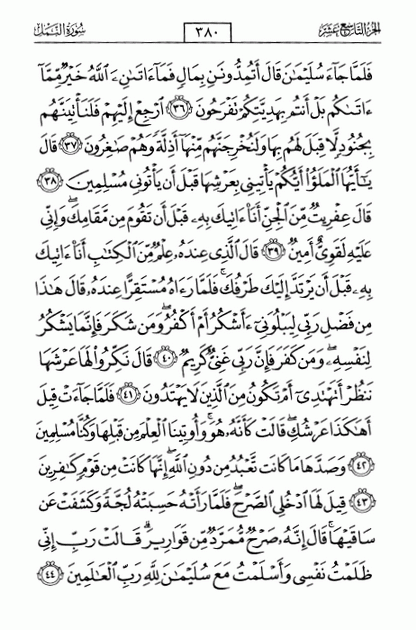 الجزء التاسع عشر ٣٨٠ سورة النمل
فَلَمَّا جَآءَ سُلَيْمَٰنَ قَالَ أَتُمِدُّونَنِ بِمَالٍ فَمَآ ءَاتَىٰنِۦَ ٱللَّهُ خَيْرٌ مِّمَّآ
ءَاتَىٰكُم بَلْ أَنتُم بِهَدِيَّتِكُمْ تَفْرَحُونَ ٣٦ ٱرْجِعْ إِلَيْهِمْ فَلَنَأْتِيَنَّهُم
بِجُنُودٍ لَّا قِبَلَ لَهُم بِهَا وَلَنُخْرِجَنَّهُم مِّنْهَآ أَذِلَّةً وَهُمْ صَٰغِرُونَ ٣٧ قَالَ
يَٰٓأَيُّهَا ٱلْمَلَؤُا۟ أَيُّكُمْ يَأْتِينِى بِعَرْشِهَا قَبْلَ أَن يَأْتُونِى مُسْلِمِينَ ٣٨
قَالَ عِفْرِيتٌ مِّنَ ٱلْجِنِّ أَنَا۠ ءَاتِيكَ بِهِۦ قَبْلَ أَن تَقُومَ مِن مَّقَامِكَ ۖ وَإِنِّى
عَلَيْهِ لَقَوِىٌّ أَمِينٌ ٣٩ قَالَ ٱلَّذِى عِندَهُۥ عِلْمٌ مِّنَ ٱلْكِتَٰبِ أَنَا۠ ءَاتِيكَ
بِهِۦ قَبْلَ أَن يَرْتَدَّ إِلَيْكَ طَرْفُكَ ۚ فَلَمَّا رَءَاهُ مُسْتَقِرًّا عِندَهُۥ قَالَ هَٰذَا
مِن فَضْلِ رَبِّى لِيَبْلُوَنِىٓ ءَأَشْكُرُ أَمْ أَكْفُرُ ۖ وَمَن شَكَرَ فَإِنَّمَا يَشْكُرُ
لِنَفْسِهِۦ ۖ وَمَن كَفَرَ فَإِنَّ رَبِّى غَنِىٌّ كَرِيمٌ ٤٠ قَالَ نَكِّرُوا۟ لَهَا عَرْشَهَا
نَنظُرْ أَتَهْتَدِىٓ أَمْ تَكُونُ مِنَ ٱلَّذِينَ لَا يَهْتَدُونَ ٤١ فَلَمَّا جَآءَتْ قِيلَ
أَهَٰكَذَا عَرْشُكِ ۖ قَالَتْ كَأَنَّهُۥ هُوَ ۚ وَأُوتِينَا ٱلْعِلْمَ مِن قَبْلِهَا وَكُنَّا مُسْلِمِينَ
٤٢ وَصَدَّهَا مَا كَانَت تَّعْبُدُ مِن دُونِ ٱللَّهِ ۖ إِنَّهَا كَانَتْ مِن قَوْمٍ كَٰفِرِينَ
٤٣ قِيلَ لَهَا ٱدْخُلِى ٱلصَّرْحَ ۖ فَلَمَّا رَأَتْهُ حَسِبَتْهُ لُجَّةً وَكَشَفَتْ عَن
سَاقَيْهَا ۚ قَالَ إِنَّهُۥ صَرْحٌ مُّمَرَّدٌ مِّن قَوَارِيرَ ۗ قَالَتْ رَبِّ إِنِّى
ظَلَمْتُ نَفْسِى وَأَسْلَمْتُ مَعَ سُلَيْمَٰنَ لِلَّهِ رَبِّ ٱلْعَٰلَمِينَ ٤٤